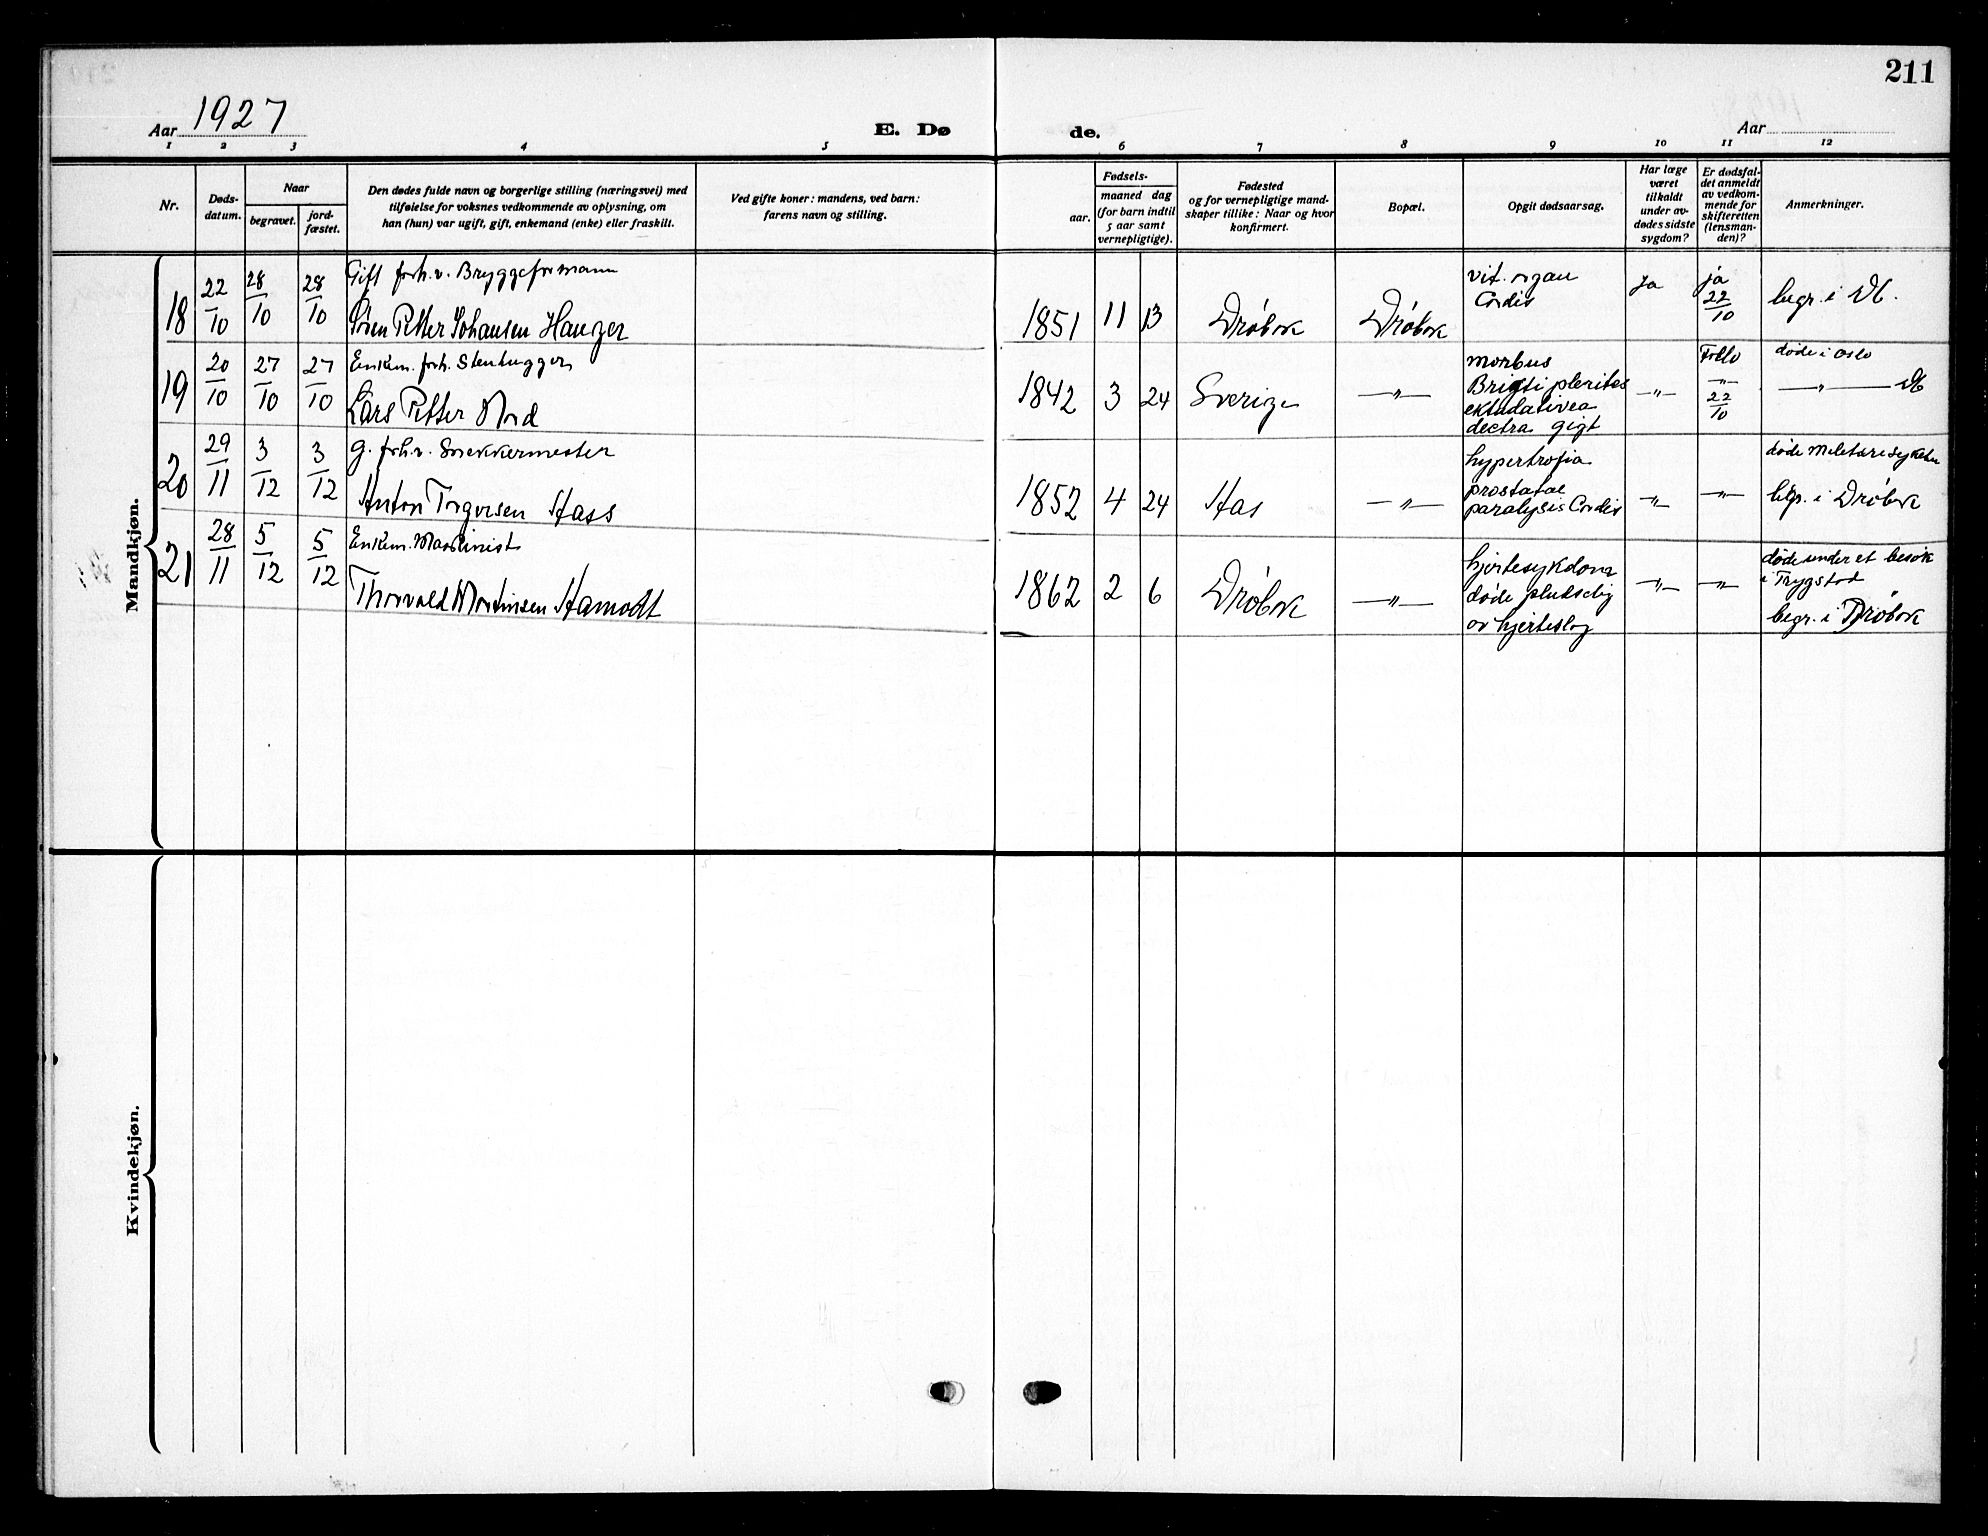 211
Aar 1927
E. Dø de.
Aar
1 2 3 4 5 6 7 8 9 10 11 12
Nr.
Døds-
datum.
Naar
begravet.
jord-
fæstet.
Den dødes fulde navn og borgerlige stilling (næringsvei) med
tilføielse for voksnes vedkommende av oplysning, om
han (hun) var ugift, gift, enkemand (enke) eller fraskilt.
Ved gifte koner: mandens, ved barn:
farens navn og stilling.
Fødsels-
aar.
maaned dag
(for barn indtil
5 aar samt
vernepligtige).
Fødested
og for vernepligtige mand-
skaper tillike: Naar og hvor
konfirmert.
Bopæl.
Opgit dødsaarsag.
Har læge
været
tilkaldt
under av-
dødes sidste
sygdom?
Er dødsfal-
det anmeldt
av vedkom-
mende for
skifteretten
(lensman-
den)?
Anmerkninger.
Mandkjøn.
18 22/10 28/10 28/10
Gift forh.v. Bryggeformann
Søren Petter Johansen Hauger
1851 11 13 Drøbak Drøbak
vit. organ
Cordis
ja
ja
22/10
begr. i
19 20/10 27/10 27/10
Enkem. forh. Stenhugger
Lars Petter Nord
1842 3 24 Sverige —„—
morbus
Brigti plerites
ektudativea
dectra gigt
—„—
Follo
—„—
22/10
døde i Oslo
—„—
20 29/11 3/12 3/12
g. forh.v. Snekkermester
Anton Torgersen Hass
1852 4 24 Has —„—
hypertrofia
prostatae
paralysis Cordis
—„— —„—
døde
begr. i Drøbak
21 28/11 5/12 5/12
Enkem. Maskinist
Thorvald Martinsen Hamodt
1862 2 6 Drøbak —„—
hjertesykdom
døde plutselig
av hjerteslag
—„— —„—
døde under et besøk
i Trygstad
begr. i Drøbak
Kvindekjøn.